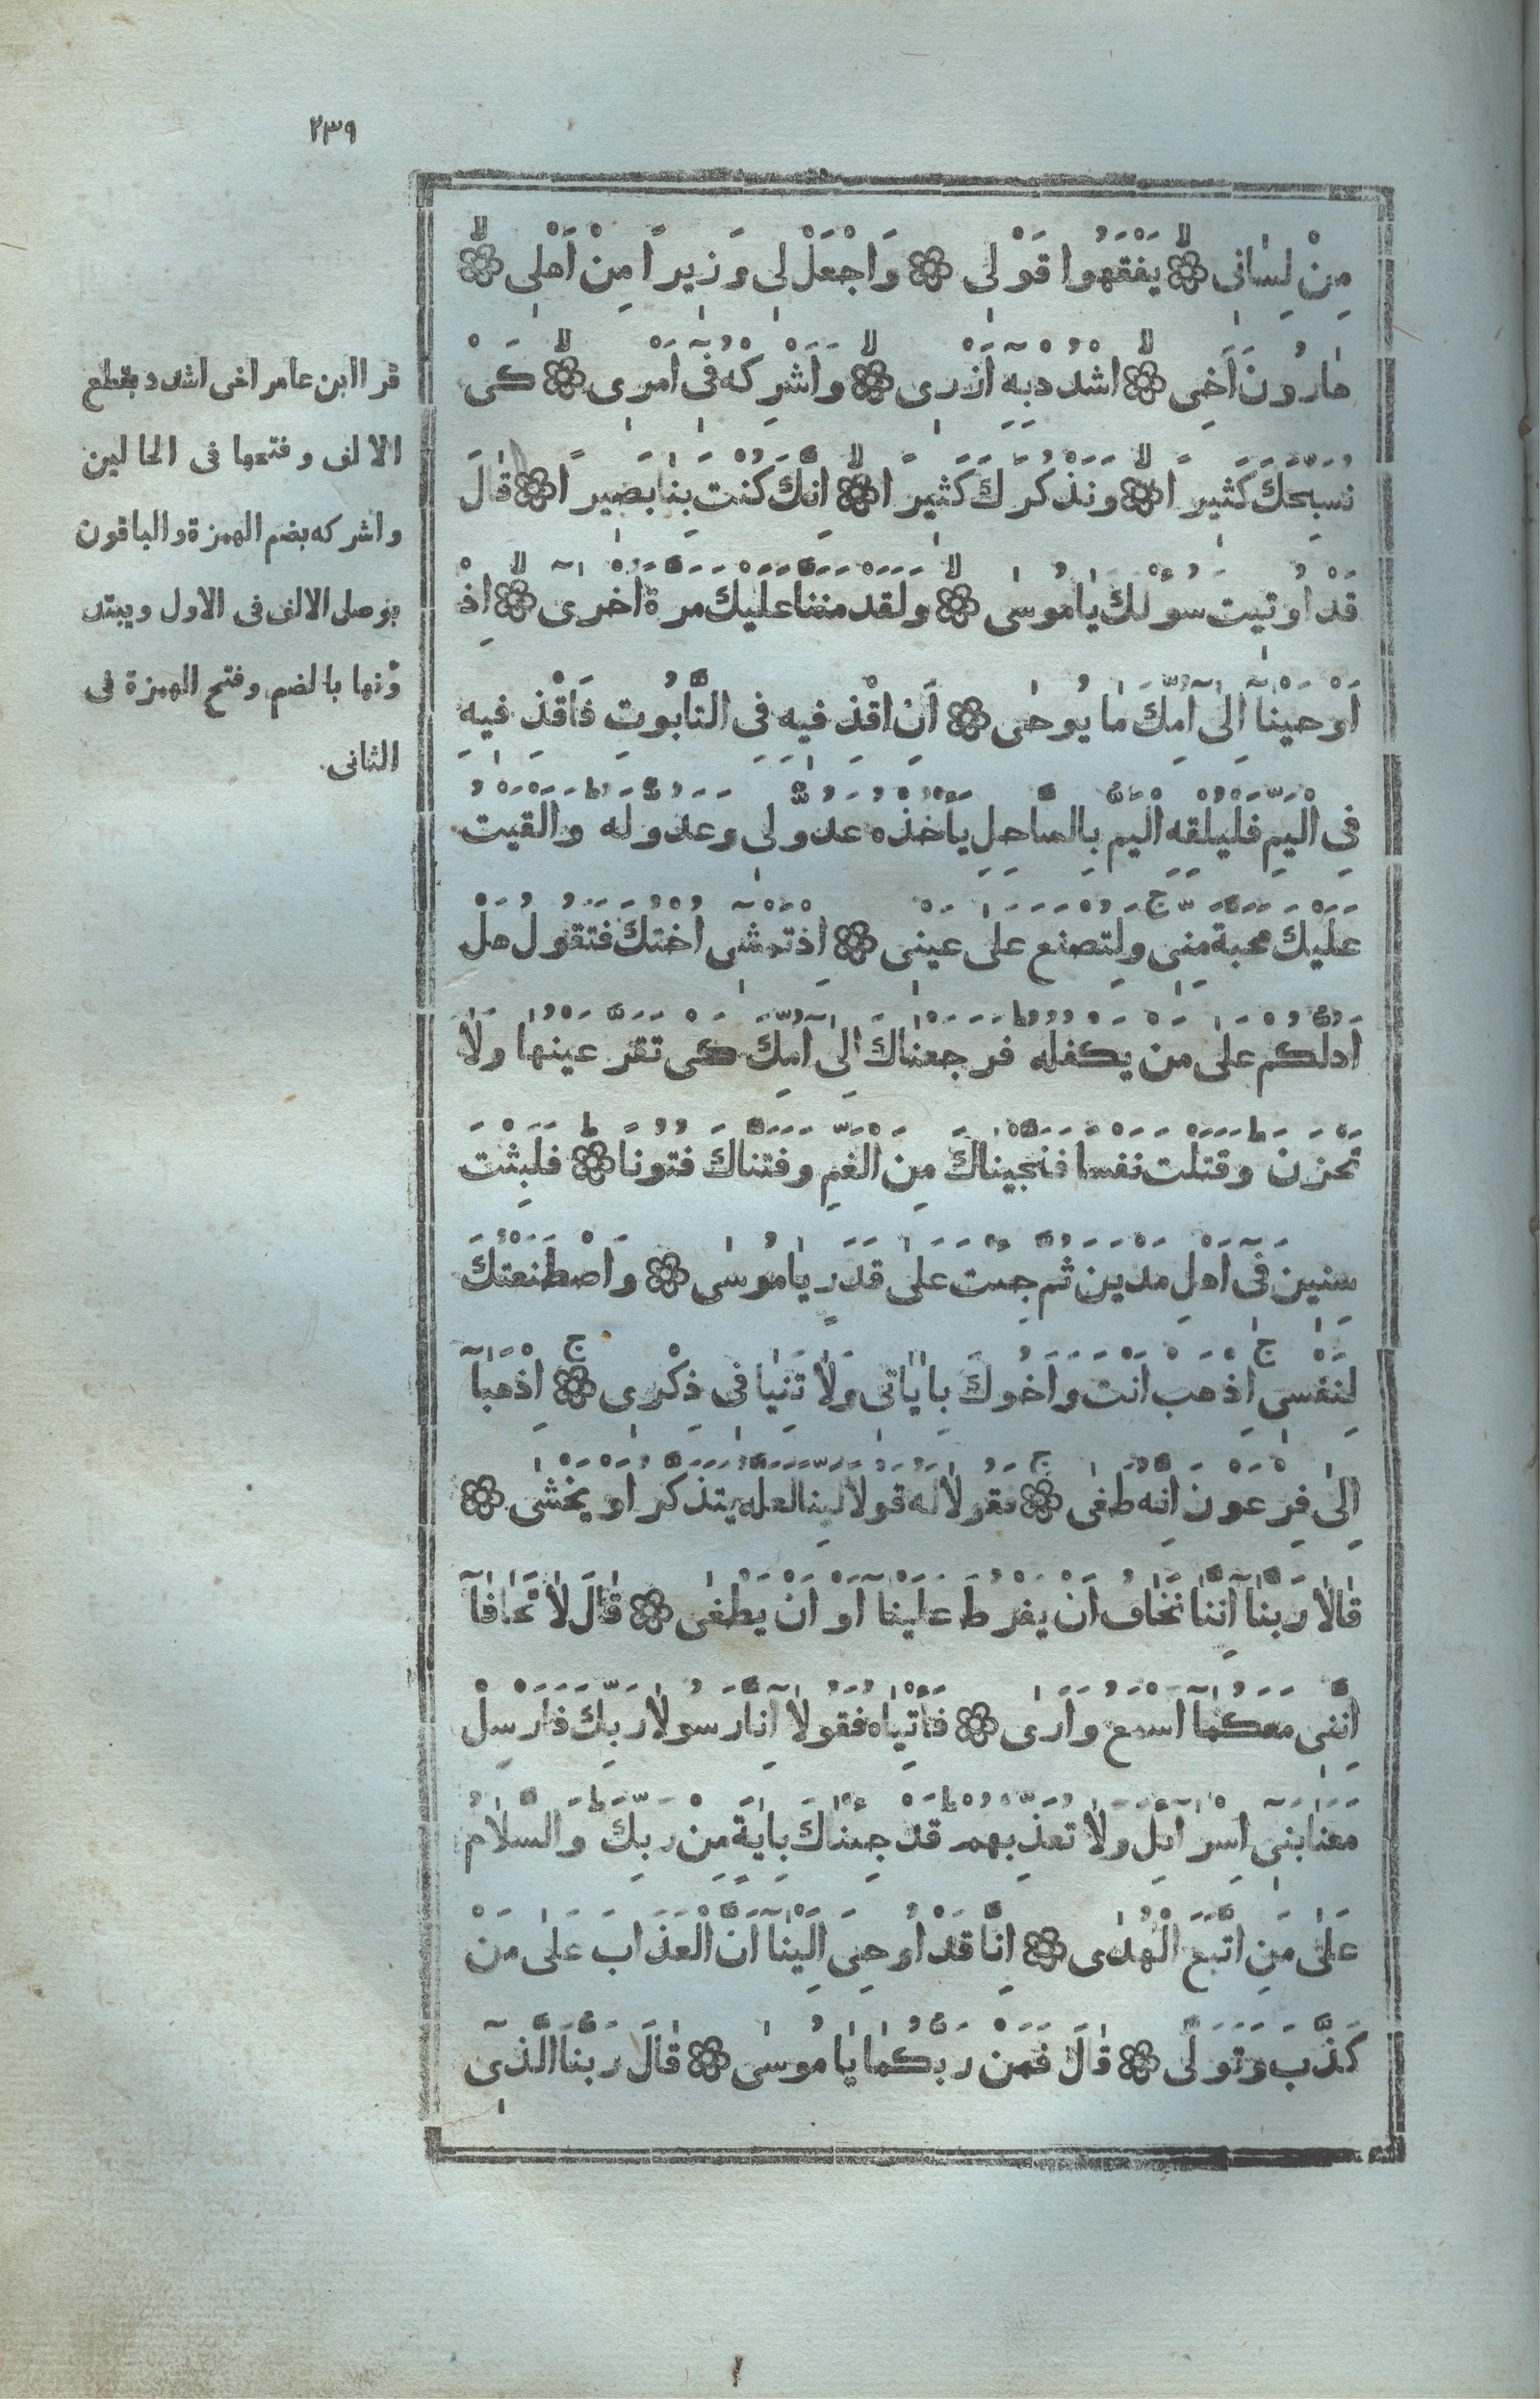 ٢٣٩
مِنْ لِسٰانٖى ۞ يَفْقَهُوا قَوْلٖى ۞ وَاجْعَلْ لٖى وَزٖيراً مِنْ اَهْلٖى ۞
هٰارُونَ اَخِى ۞ اشْدُدْ بِهٖٓ اَزْرٖى ۞ وَاَشْرِكْهُ فٖٓى اَمْرٖى ۞ كَىْ
نُسَبِّحَكَ كَثٖيراً ۞ وَنَذْكُرَكَ كَثٖيراً ۞ اِنَّكَ كُنْتَ بِنٰا بَصٖيراً ۞ قٰالَ
قَدْ اُوتٖيتَ سُؤْلَكَ يٰامُوسٰى ۞ وَلَقَدْ مَنَنّٰا عَلَيْكَ مَرَّةً اُخْرٰىٓ ۞ اِذْ
اَوْحَيْنٰٓا اِلٰٓى اُمِّكَ مٰا يُوحٰى ۞ اَنِ اقْذِفٖيهِ فِى التّٰابُوتِ فَاقْذِفٖيهِ
فِى الْيَمِّ فَلْيُلْقِهِ الْيَمُّ بِالسّٰاحِلِ يَأْخُذْهُ عَدُوٌّ لٖى وَعَدُوٌّ لَهُ وَاَلْقَيْتُ
عَلَيْكَ مَحَبَّةً مِنّٖى وَلِتُصْنَعَ عَلٰى عَيْنٖى ۞ اِذْ تَمْشٖٓى اُخْتُكَ فَتَقُولُ هَلْ
اَدُلُّكُمْ عَلٰى مَنْ يَكْفُلُهُ فَرَجَعْنٰاكَ اِلٰٓى اُمِّكَ كَىْ تَقَرَّ عَيْنُهٰا وَلٰا
تَحْزَنَ وَقَتَلْتَ نَفْساً فَنَجَّيْنٰاكَ مِنَ الْغَمِّ وَفَتَنّٰاكَ فُتُوناً ۞ فَلَبِثْتَ
سِنٖينَ فٖٓى اَهْلِ مَدْيَنَ ثُمَّ جِئْتَ عَلٰى قَدَرٍ يٰامُوسٰى ۞ وَاصْطَنَعْتُكَ
لِنَفْسٖى اِذْهَبْ اَنْتَ وَاَخُوكَ بِاٰيٰاتٖى وَلٰا تَنِيٰا فٖى ذِكْرٖى ۞ اِذْهَبٰٓا
اِلٰى فِرْعَوْنَ اِنَّهُ طَغٰى ۞ فَقُولٰا لَهُ قَوْلاً لَيِّناً لَعَلَّهُ يَتَذَكَّرُ اَوْ يَخْشٰى ۞
قٰالٰا رَبَّنٰٓا اِنَّنٰا نَخٰافُ اَنْ يَفْرُطَ عَلَيْنٰٓا اَوْ اَنْ يَطْغٰى ۞ قٰالَ لٰا تَخٰافٰٓا
اِنَّنٖى مَعَكُمٰٓا اَسْمَعُ وَاَرٰى ۞ فَأْتِيٰاهُ فَقُولٰٓا اِنّٰا رَسُولٰا رَبِّكَ فَاَرْسِلْ
مَعَنٰا بَنٖٓى اِسْرٰٓائٖلَ وَلٰا تُعَذِّبْهُمْ قَدْ جِئْنٰاكَ بِاٰيَةٍ مِنْ رَبِّكَ وَالسَّلٰامُ
عَلٰى مَنِ اتَّبَعَ الْهُدٰى ۞ اِنّٰا قَدْ اُوحِىَ اِلَيْنٰٓا اَنَّ الْعَذٰابَ عَلٰى مَنْ
كَذَّبَ وَتَوَلّٰى ۞ قٰالَ فَمَنْ رَبُّكُمٰا يٰامُوسٰى ۞ قٰالَ رَبُّنَا الَّذٖٓى
قرا ابن عامر اخى اشدد بقطع
الالف وفتحها فى الحالين
واشركه بضم الهمزة والباقون
بوصل الالف فى الاول ويبتد
ؤنها بالضم وفتح الهمزة فى
الثانى.